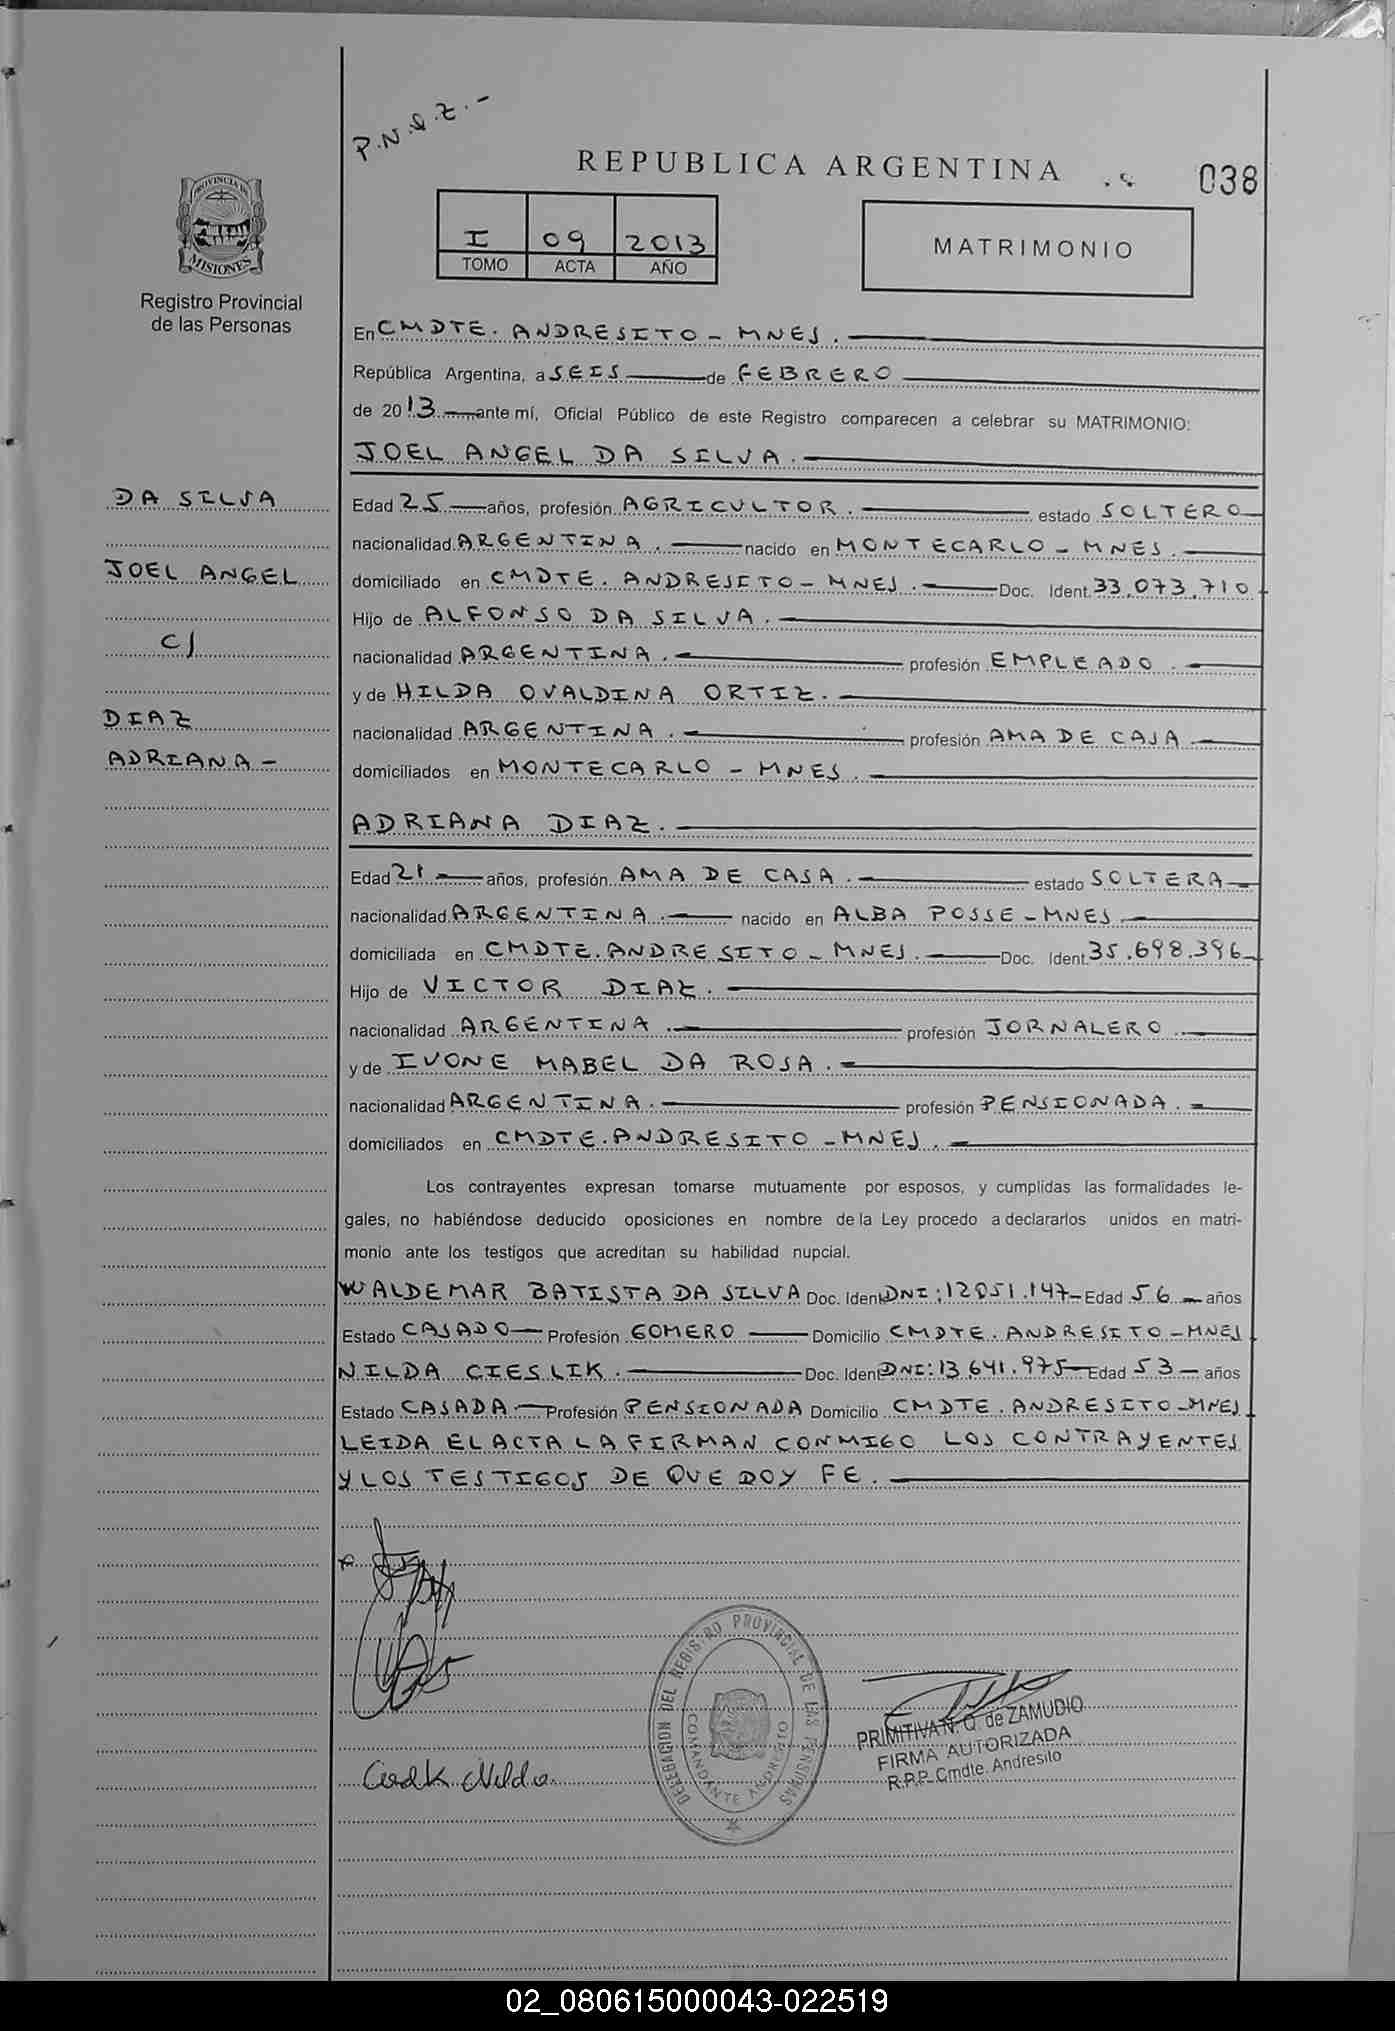 P.N.Q.Z.-
REPUBLICA ARGENTINA
038
PROVINCIA DE
MISIONES
Registro Provincial
de las Personas
I 09 2013
TOMO ACTA AÑO
MATRIMONIO
En CMDTE. ANDRESITO - MNES.
República Argentina, a SEIS de FEBRERO
de 2013 ante mí, Oficial Público de este Registro comparecen a celebrar su MATRIMONIO:
JOEL ANGEL DA SILVA.
DA SILVA
JOEL ANGEL
C/
DIAZ
ADRIANA -
Edad 25 años, profesión AGRICULTOR. estado SOLTERO
nacionalidad ARGENTINA. nacido en MONTECARLO - MNES.
domiciliado en CMDTE. ANDRESITO - MNES. Doc. Ident. 33.073.710
Hijo de ALFONSO DA SILVA.
nacionalidad ARGENTINA. profesión EMPLEADO.
y de HILDA OVALDINA ORTIZ.
nacionalidad ARGENTINA. profesión AMA DE CASA.
domiciliados en MONTECARLO - MNES.
ADRIANA DIAZ.
Edad 21 años, profesión AMA DE CASA. estado SOLTERA
nacionalidad ARGENTINA. nacido en ALBA POSSE - MNES.
domiciliada en CMDTE. ANDRESITO - MNES. Doc. Ident. 35.698.396
Hijo de VICTOR DIAZ.
nacionalidad ARGENTINA. profesión JORNALERO.
y de IVONE MABEL DA ROSA.
nacionalidad ARGENTINA. profesión PENSIONADA.
domiciliados en CMDTE. ANDRESITO - MNES.
Los contrayentes expresan tomarse mutuamente por esposos, y cumplidas las formalidades le-
gales, no habiéndose deducido oposiciones en nombre de la Ley procedo a declararlos unidos en matri-
monio ante los testigos que acreditan su habilidad nupcial.
WALDEMAR BATISTA DA SILVA Doc. Ident DNI: 12851.147 Edad 56 años
Estado CASADO Profesión GOMERO Domicilio CMDTE. ANDRESITO - MNES
NILDA CIESLIK. Doc. Ident DNI: 13.641.975 Edad 53 años
Estado CASADA Profesión PENSIONADA Domicilio CMDTE. ANDRESITO - MNES
LEIDA EL ACTA LA FIRMAN CONMIGO LOS CONTRAYENTES
Y LOS TESTIGOS DE QUE DOY FE.
DELEGACION DEL REGISTRO PROVINCIAL DE LAS PERSONAS
COMANDANTE ANDRESITO
PRIMITIVA N. Q. de ZAMUDIO
FIRMA AUTORIZADA
R.P.P. Cmdte. Andresito
Nilda
02_080615000043-022519